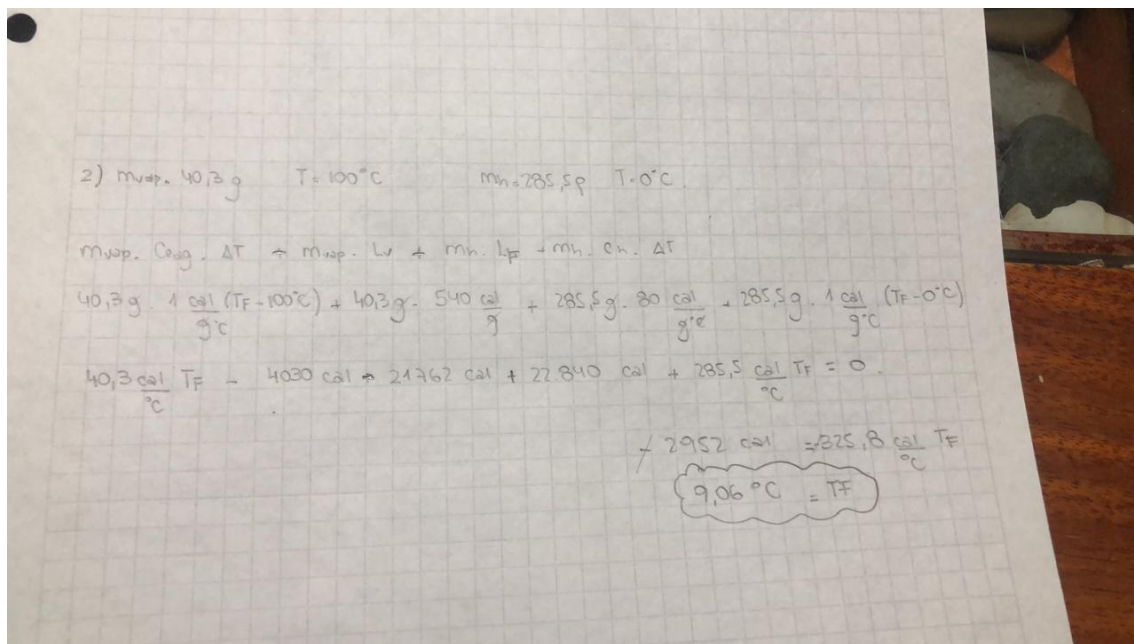 2) mvap. 40,3 g T= 100°C mh=285,5g T=0°C.
mvap. Cag. ΔT + mvap. Lv + mh. LF + mh. ch. ΔT
40,3 g. 1 cal/g°C (TF-100°C) + 40,3g. 540 cal/g + 285,5g. 80 cal/g°C + 285,5g. 1 cal/g°C (TF-0°C)
40,3 cal/°C TF - 4030 cal - 21762 cal + 22840 cal + 285,5 cal/°C TF = 0.
- 2952 cal = -325,8 cal/°C TF
9,06 °C = TF